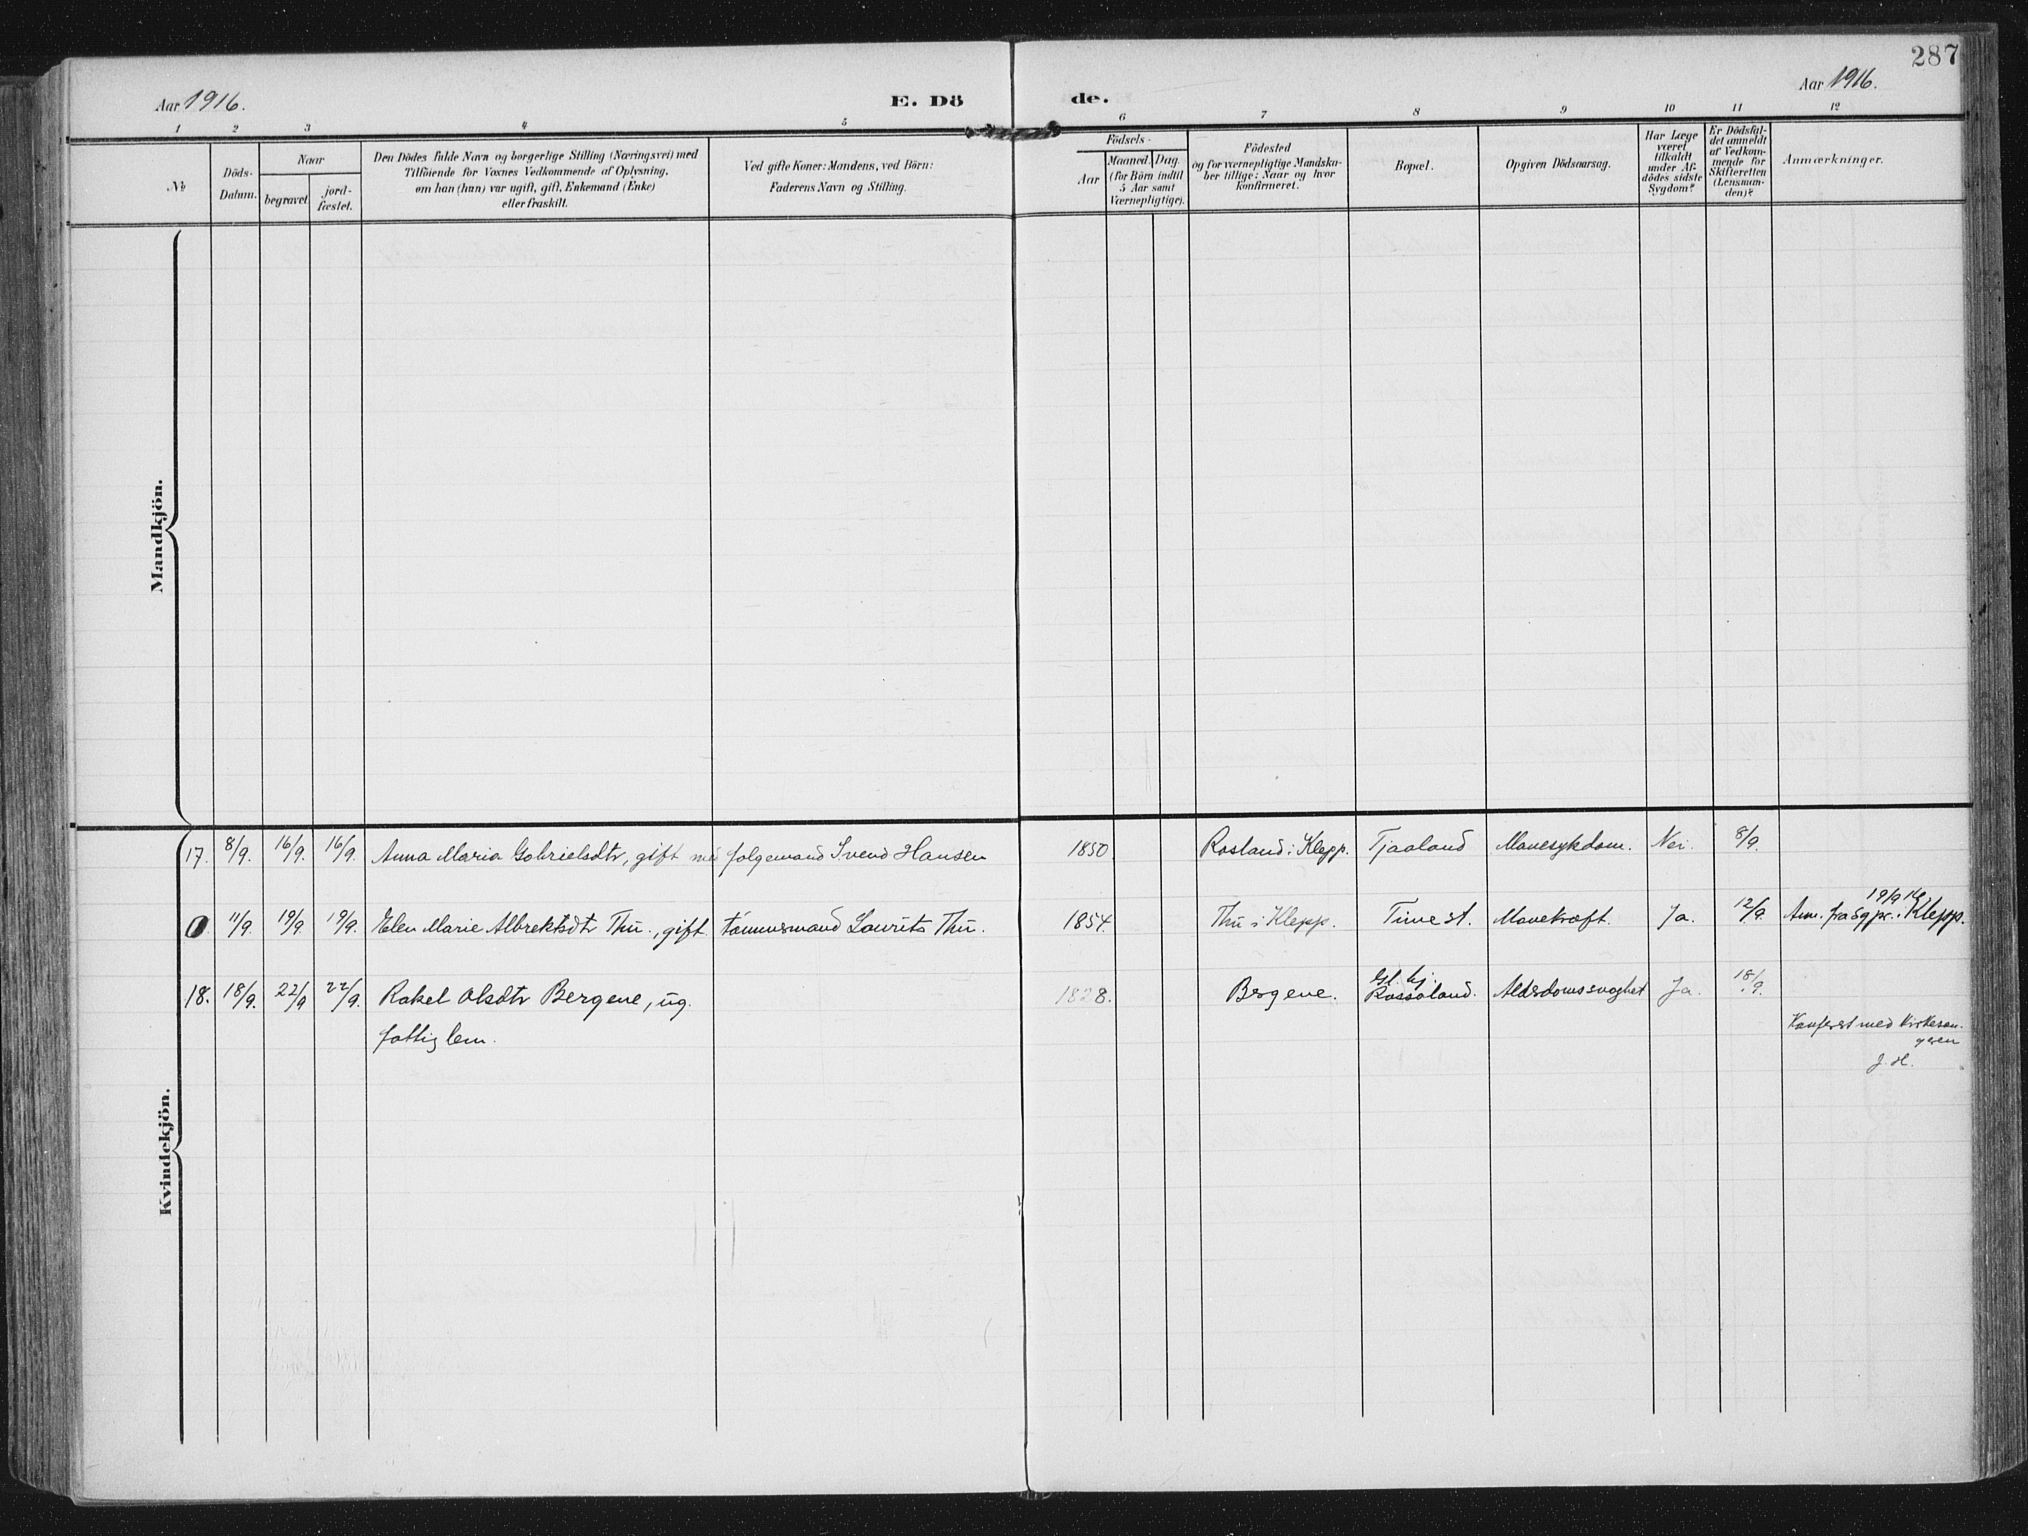 287
Aar 1916.
E. Dö
de.
Aar 1916.
1 2 3 4 5 6 7 8 9 10 11 12
No
Döds-
Datum.
Naar
begravet.
jord-
fæstet.
Den Dödes fulde Navn og borgerlige Stilling (Næringsvei) med
Tilföiende for Voxnes Vedkommende af Oplysning,
om han (hun) var ugift, gift, Enkemand (Enke)
eller fraskilt.
Ved gifte Koner: Mandens, ved Börn:
Faderens Navn og Stilling.
Födsels-
Aar
Maaned. Dag.
(for Börn indtil
5 Aar samt
Værnepligtige).
Födested
og for værnepligtige Mandska-
ber tillige: Naar og hvor
konfirmeret.
Bopæl.
Opgiven Dödsaarsag.
Har Læge
været
tilkaldt
under Af-
dödes sidste
Sygdom?
Er Dödsfal-
det anmeldt
af Vedkom-
mende for
Skifteretten
(Lensman-
den)?
Anmærkninger.
Mandkjön.
17. 8/9. 16/9. 16/9. Anna Maria Gabrielsdtr, gift med folgemand Svend Hansen 1850. Rosland i Klepp. Tjaaland Mavesykdom. Nei. 8/9.
19/9 16
11/9. 19/9 19/9. Elen Marie Albrektsdtr Thu., gift tömmermand Laurits Thu. 1854. Thu i Klepp. Time st. Mavekræft. Ja. 12/9. Anm. fra sgpr. i Klepp.
Gl. hj.
18. 18/9. 22/9 22/9. Rakel Olsdtr Bergene, ug. 1828. Bergene. Rossaland. Alderdomssvaghet Ja. 18/9.
fattiglem.
Konferert med Kirkesan-
geren
J. H.
Kvindekjön.